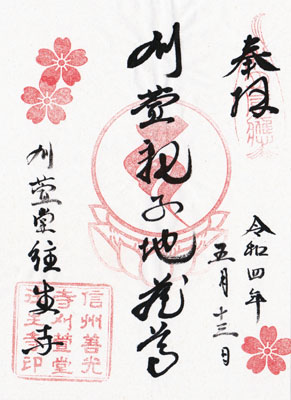 奉拝
令和四年
五月十三日
刈萱親子地蔵尊
刈萱堂往生寺
信州善光
寺刈萱堂
往生寺印